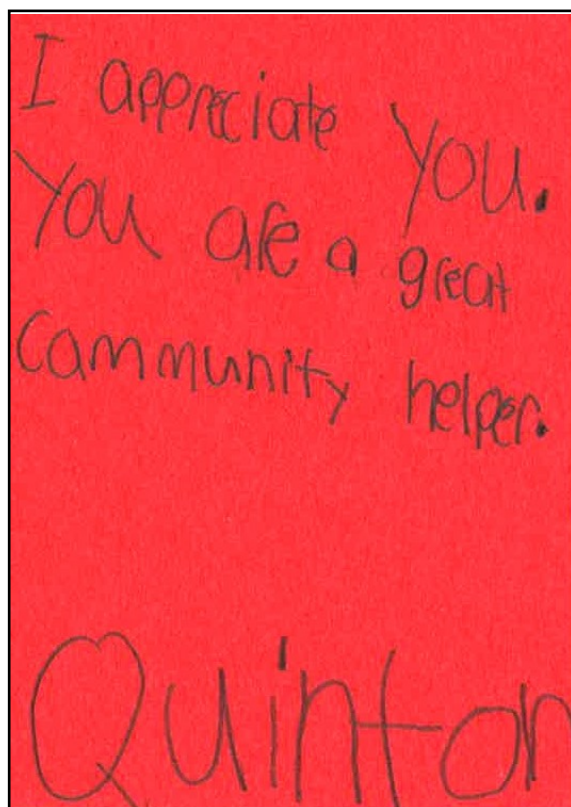 I appreciate you.
You are a great
community helper.
Quinton